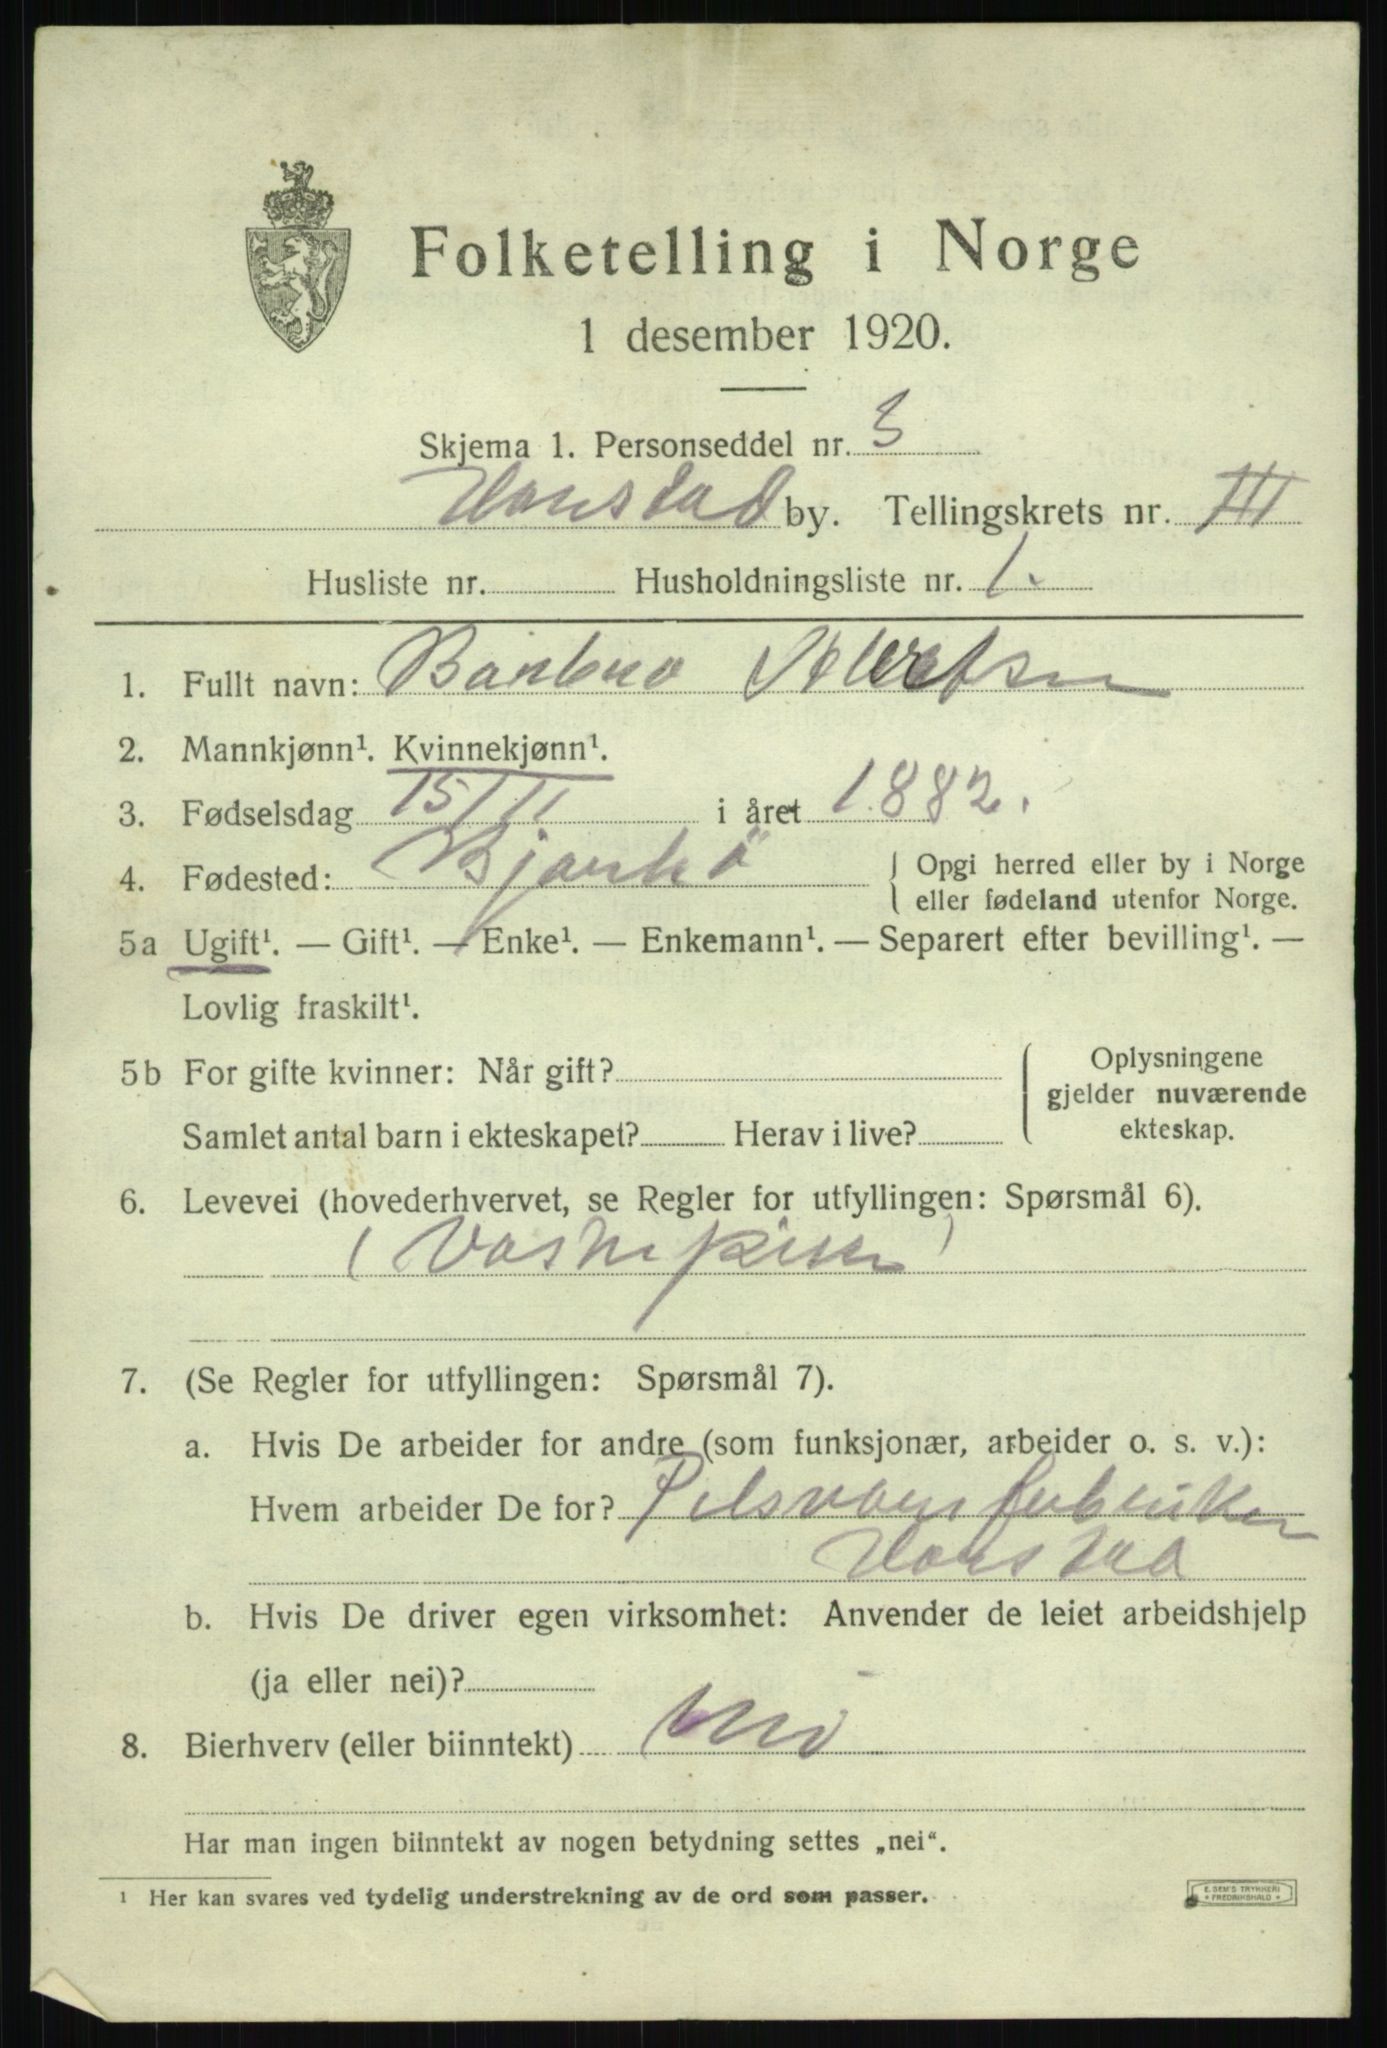 Folketelling i Norge
1 desember 1920.
Skjema 1. Personseddel nr. 3
Harstad by. Tellingskrets nr. III
Husliste nr. Husholdningsliste nr. 1.
1. Fullt navn: Barbro
2. Mannkjønn¹. Kvinnekjønn¹.
3. Fødselsdag 15/11 i året 1882.
4. Fødested: Bjarkö { Opgi herred eller by i Norge
eller fødeland utenfor Norge.
5a Ugift¹. — Gift¹. — Enke¹. — Enkemann¹. — Separert efter bevilling¹. —
Lovlig fraskilt¹.
5b For gifte kvinner: Når gift? { Oplysningene
gjelder nuværende
Samlet antal barn i ekteskapet? Herav i live? ekteskap.
6. Levevei (hovederhvervet, se Regler for utfyllingen: Spørsmål 6).
(Vaskepiken)
7. (Se Regler for utfyllingen: Spørsmål 7).
a. Hvis De arbeider for andre (som funksjonær, arbeider o. s. v.):
Hvem arbeider De for? Pelsvarefabriken
Harstad
b. Hvis De driver egen virksomhet: Anvender de leiet arbeidshjelp
(ja eller nei)?
8. Bierhverv (eller biinntekt) nei
Har man ingen biinntekt av nogen betydning settes „nei“.
¹ Her kan svares ved tydelig understrekning av de ord som passer.
E. SEM'S TRYKKERI
* FREDRIKSHALD *